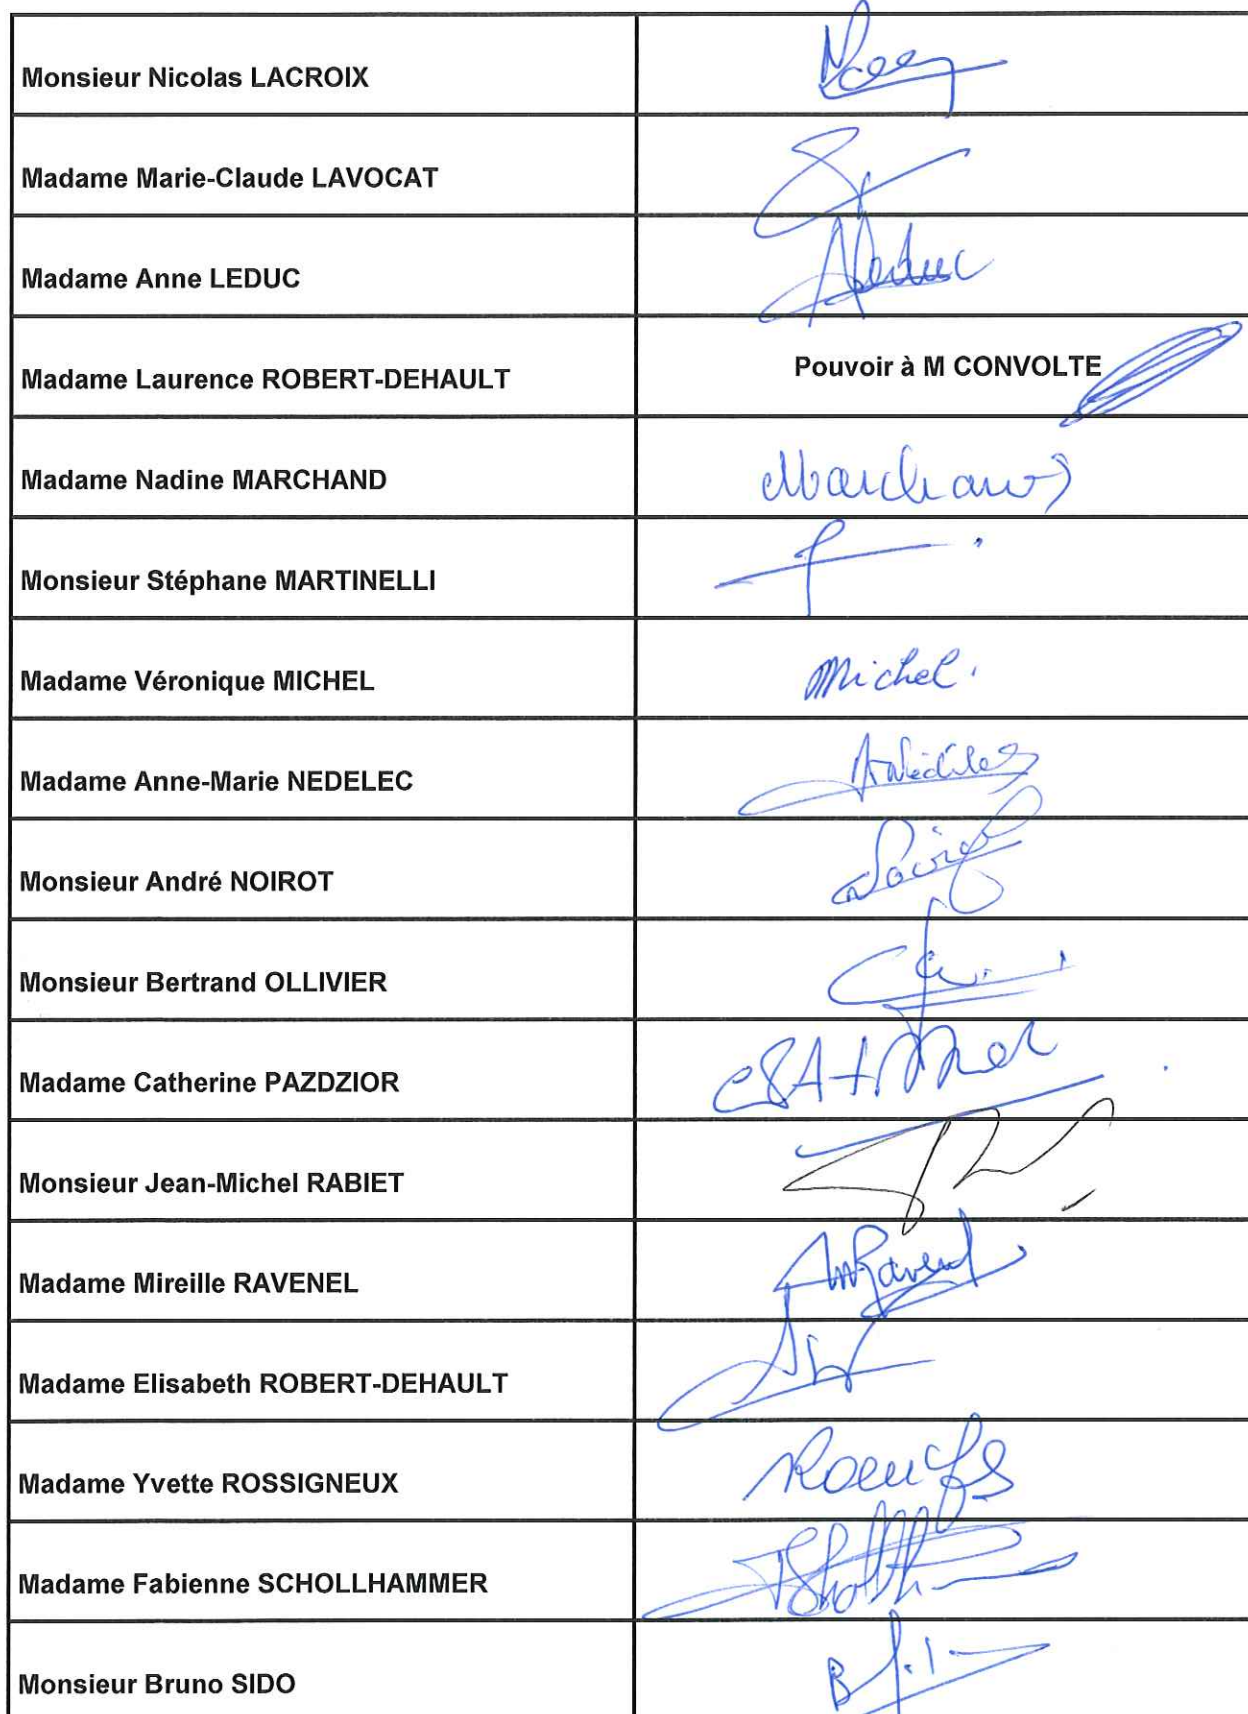 Monsieur Nicolas LACROIX
Madame Marie-Claude LAVOCAT
Madame Anne LEDUC
Leduc
Madame Laurence ROBERT-DEHAULT
Pouvoir à M CONVOLTE
Madame Nadine MARCHAND
Marchand
Monsieur Stéphane MARTINELLI
Madame Véronique MICHEL
Michel.
Madame Anne-Marie NEDELEC
Monsieur André NOIROT
Monsieur Bertrand OLLIVIER
Madame Catherine PAZDZIOR
Monsieur Jean-Michel RABIET
Madame Mireille RAVENEL
Madame Elisabeth ROBERT-DEHAULT
Madame Yvette ROSSIGNEUX
Madame Fabienne SCHOLLHAMMER
Monsieur Bruno SIDO